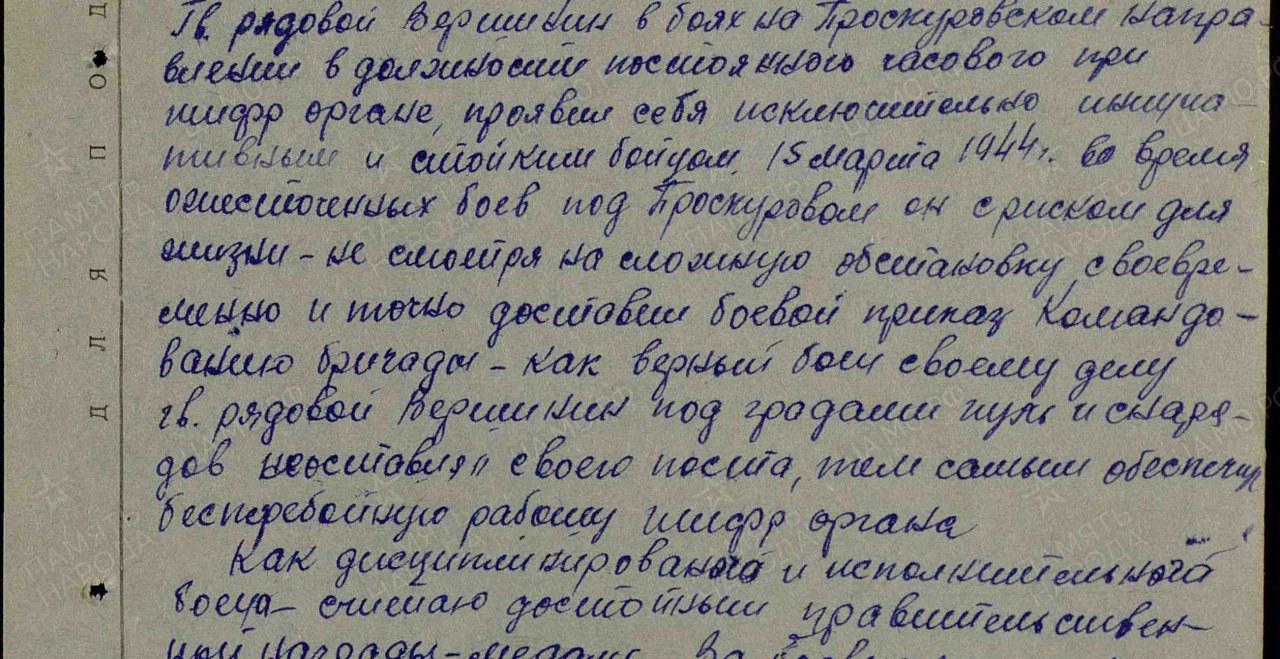 Гв. рядовой Вершинин в боях на Проскуровском напра-
влении в должности постоянного часового при
шифр органе, проявил себя исключительно инициа-
тивным и стойким бойцом. 15 марта 1944 г. во время
ожесточенных боев под Проскуровом он с риском для
жизни - не смотря на сложную обстановку, своевре-
менно и точно доставил боевой приказ Командо-
ванию бригады - как верный боец своему делу
гв. рядовой Вершинин под градами пуль и снаря-
дов неоставлял своего поста, тем самым обеспечил
бесперебойную работу шифр органа
Как дисциплинированого и исполнительного
бойца - считаю достойным правительствен-
ной награды - медали За
Д Л Я П О Д
ПАМЯТЬ
НАРОДА